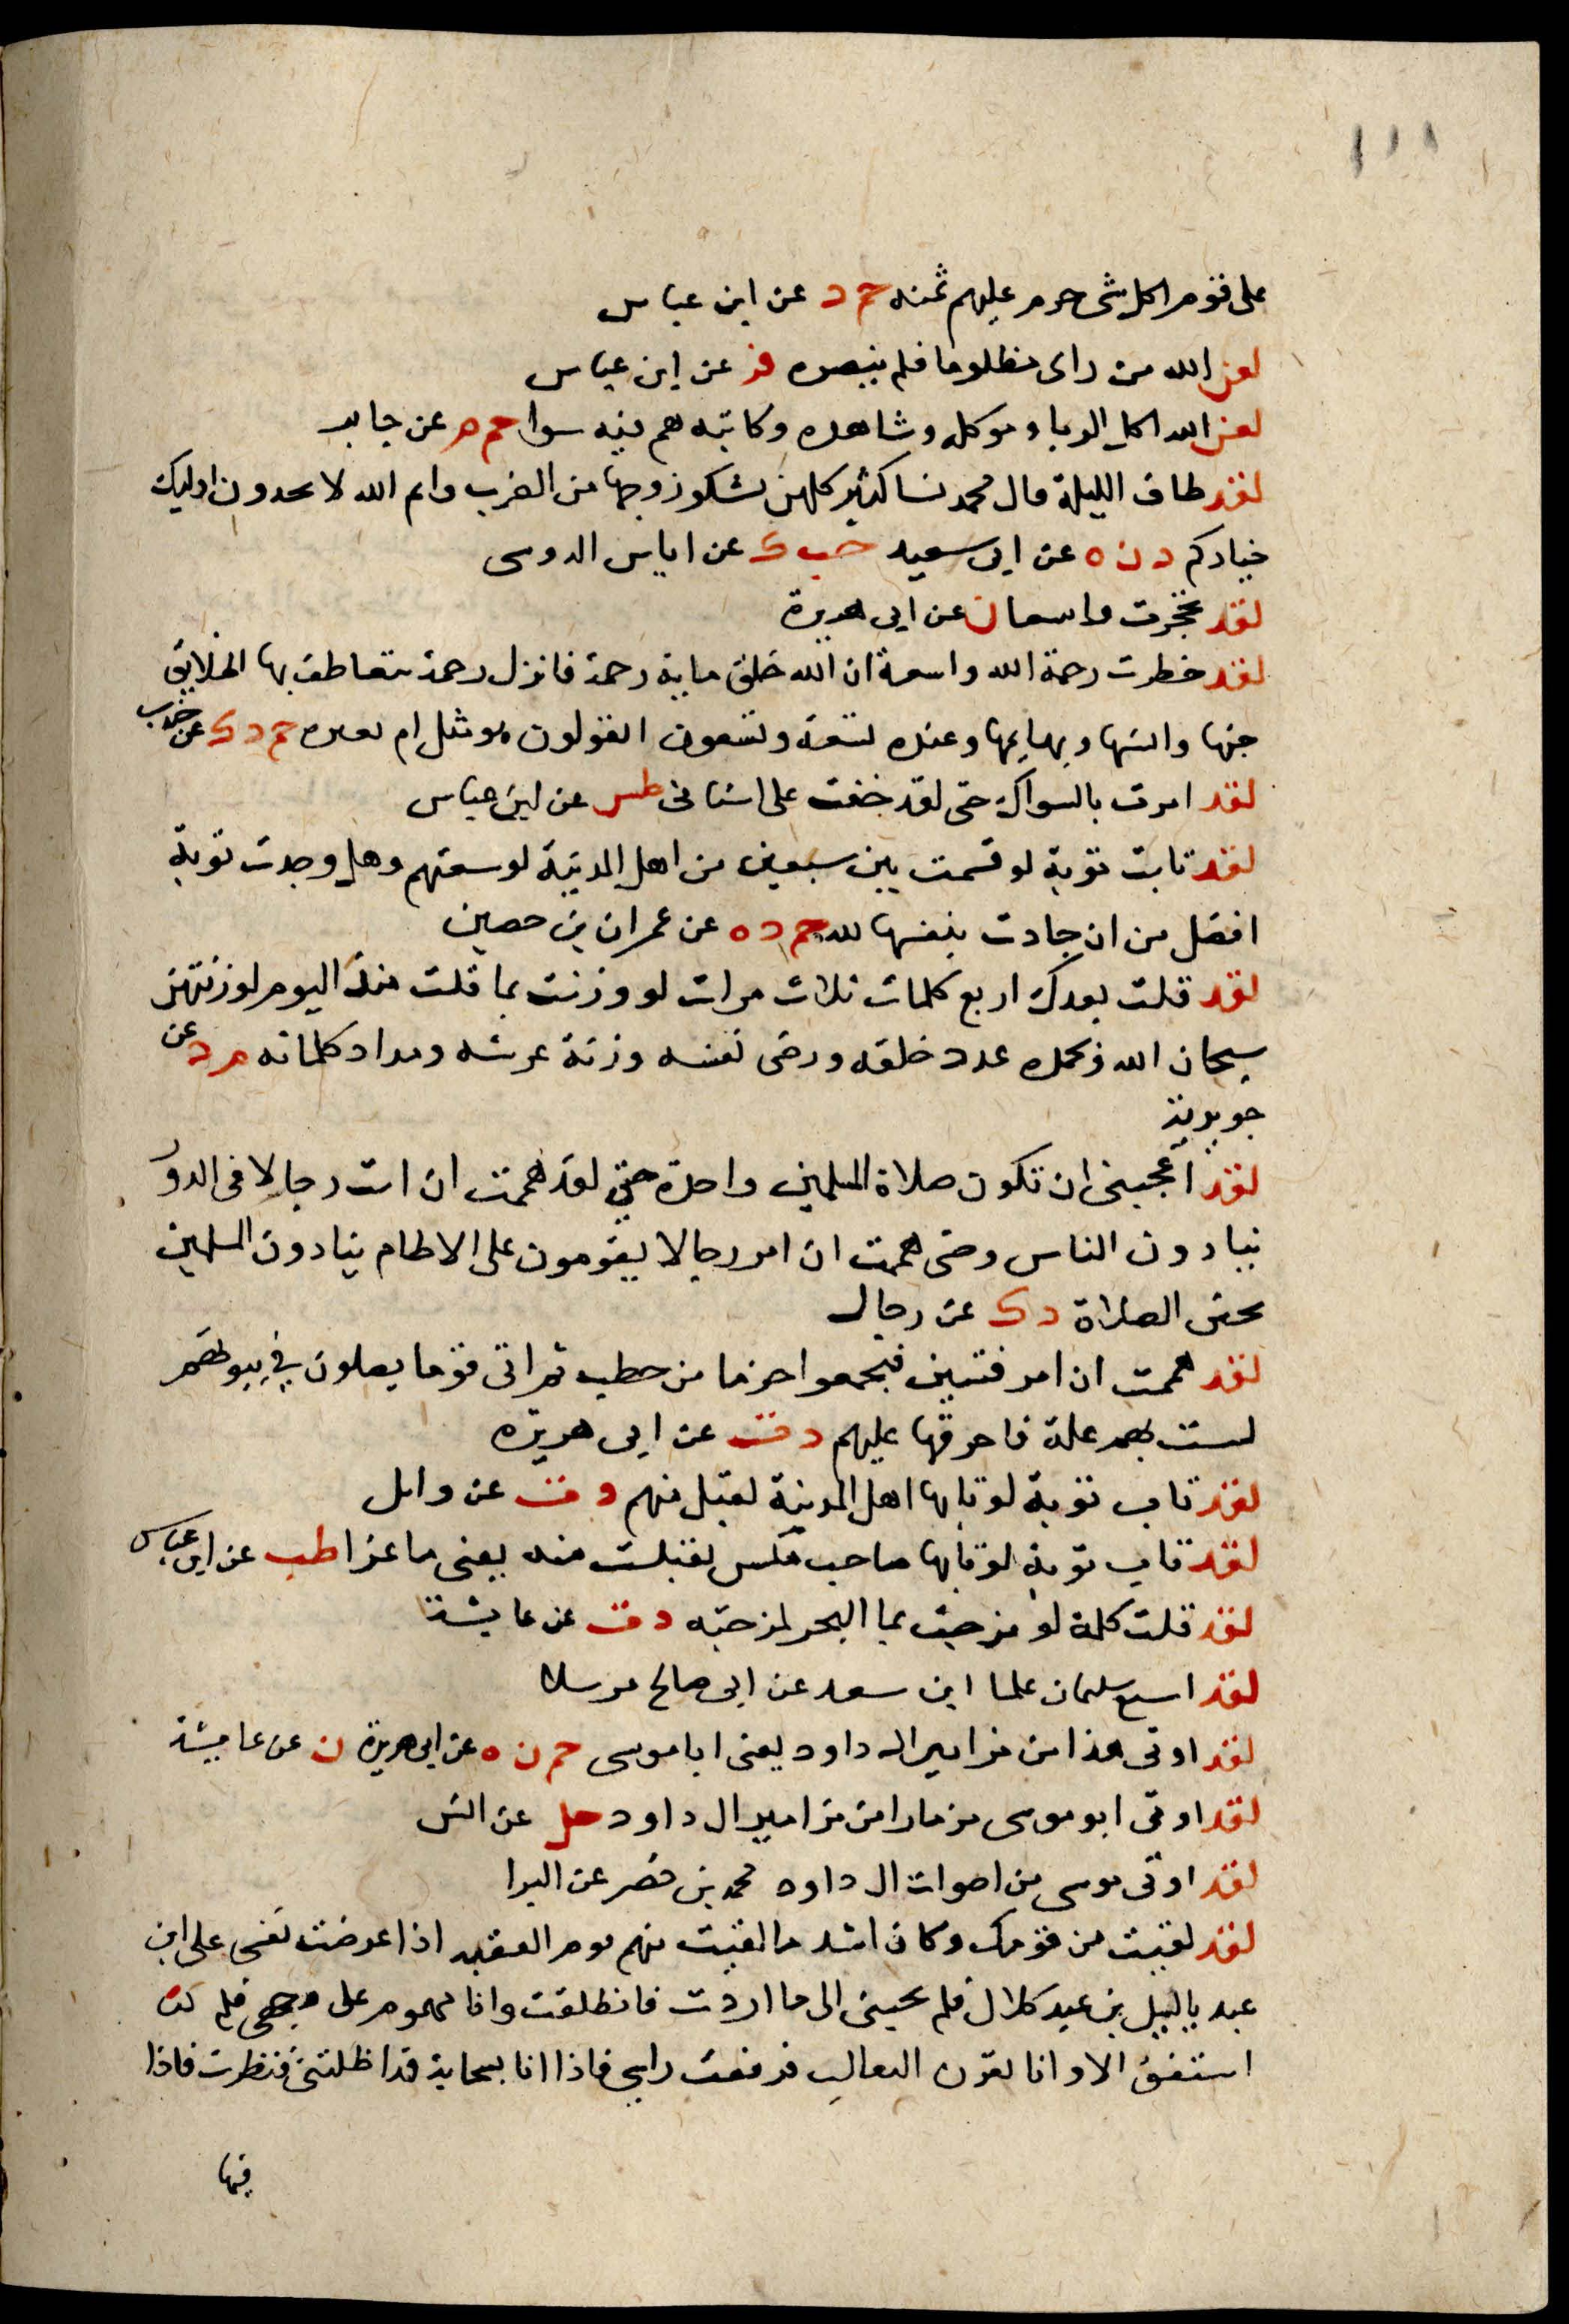 ١١١
على قوم اكل شى حرم عليهم ثمنه حم د عن ابن عباس
لعن الله من راى مظلوما فلم ينصره فر عن ابن عباس
لعن الله اكل الربا وموكله وشاهده وكاتبه هم فيه سوا حم م عن جابر
لقد طاف الليلة بال محمد نسا كثير كلهن تشكو زوجها من الضرب وايم الله لا تجدون اوليك
خياركم د ن ه عن ابى سعيد حب ك عن اياس الدوسى
لقد تحجرت واسعا ن عن ابى هريرة
لقد حظرت رحمة الله واسعة ان الله خلق ماية رحمة فانزل رحمة يتعاطف بها الخلايق
جنها وانسها وبهايمها وعنده تسعة وتسعون اتقولون هو مثل ام بعيره حم د ك عن جندب
لقد امرت بالسواك حتى لقد خفت على اسنانى طس عن ابن عباس
لقد تابت توبة لو قسمت بين سبعين من اهل المدينة لوسعتهم وهل وجدت توبة
افضل من ان جادت بنفسها لله حم د ه عن عمران بن حصين
لقد قلت بعدك اربع كلمات ثلاث مرات لو وزنت بما قلت منذ اليوم لوزنتهن
سبحان الله وبحمده عدد خلقه ورضى نفسه وزنة عرشه ومداد كلماته م د عن
جويرية
لقد اعجبنى ان تكون صلاة المسلمين واحدة حتى لقد هممت ان ابث رجالا فى الدور
ينادون الناس وحتى هممت ان امر رجالا يقومون على الاطام ينادون المسلمين
بحين الصلاة د ك عن رجال
لقد هممت ان امر فتيتى فيجمعوا حزما من حطب ثم اتى قوما يصلون فى بيوتهم
ليست بهم علة فاحرقها عليهم د ت عن ابى هريرة
لقد تاب توبة لو تابها اهل المدينة لقبل منهم د ت عن وايل
لقد تاب توبة لو تابها صاحب مكس لقبلت منه يعنى ماعزا طب عن ابن عباس
لقد قلت كلمة لو مزجت بما البحر لمزجته د ت عن عايشة
لقد اشبع سلمان علما ابن سعد عن ابى صالح مرسلا
لقد اوتى هذا من مزامير ال داود يعنى ابا موسى حم ن ه عن ابى هريرة ن عن عايشة
لقد اوتى ابو موسى مزمارا من مزامير ال داود حل عن انس
لقد اوتى موسى من اصوات ال داود محمد بن نصر عن البرا
لقد لقيت من قومك وكان اشد ما لقيت منهم يوم العقبة اذا عرضت نفسى على ابن
عبد ياليل بن عبد كلال فلم يجبنى الى ما اردت فانطلقت وانا مهموم على وجهى فلم
استفق الا وانا بقرن الثعالب فرفعت راسى فاذا انا بسحابة قد اظلتنى فنظرت فاذا
فيها